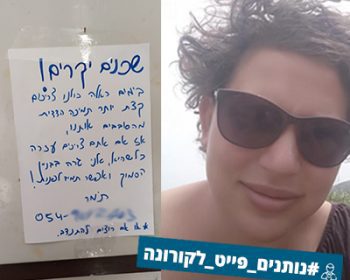 שכנים יקרים!
בימים האלה כולנו צריכים
קצת יותר תמיכה הדדית
מהסובבים אותנו,
אז אם אתם צריכים עזרה
כלשהיא, אני גרה בבניין
הסמוך ואפשר תמיד לפנות!
תומר
054-
או אם רוצים להתנדב.
#נותנים_פייט_לקורונה